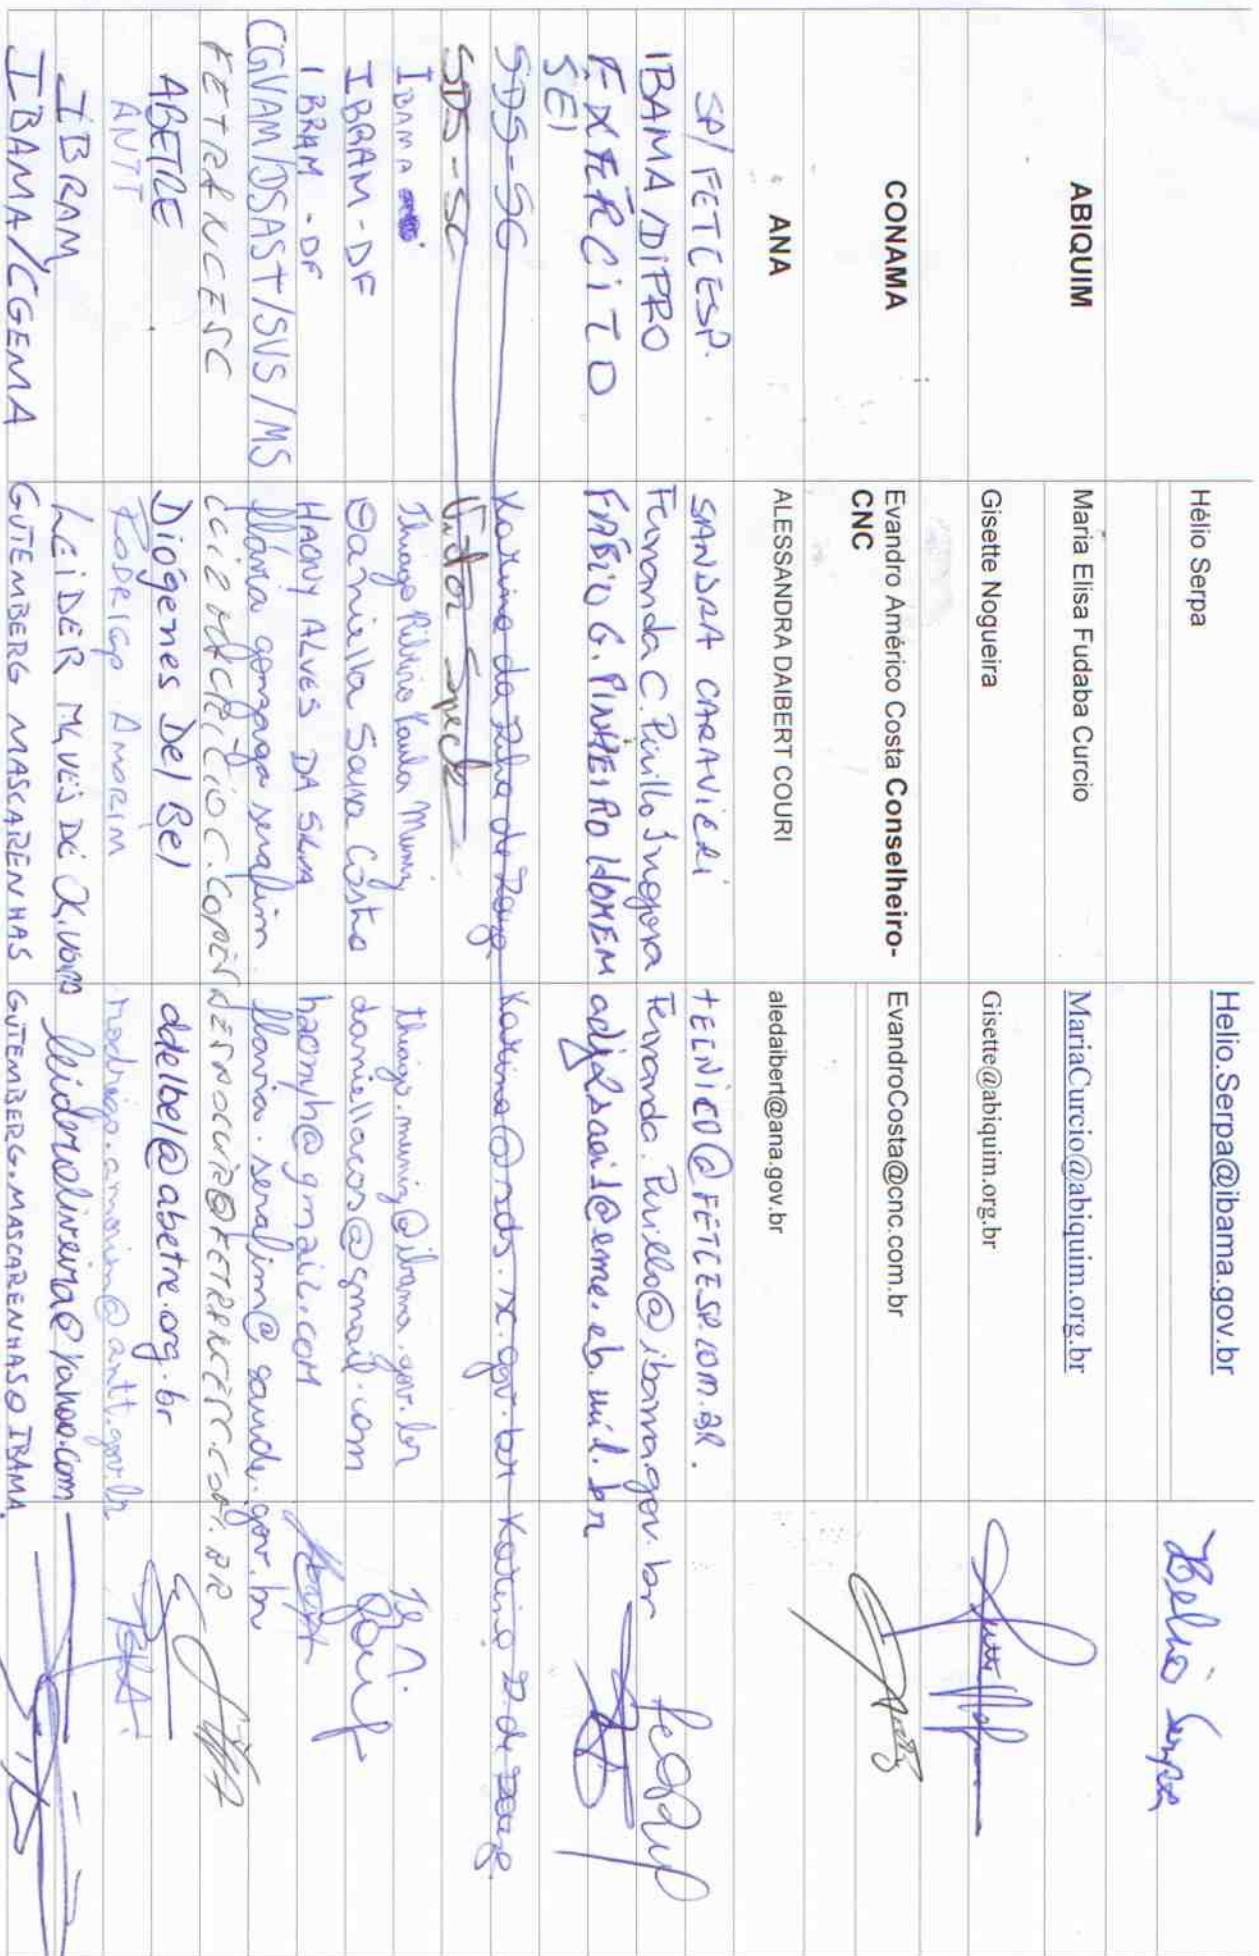 Hélio Serpa Helio.Serpa@ibama.gov.br Helio Serpa
ABIQUIM Maria Elisa Fudaba Curcio MariaCurcio@abiquim.org.br
Gisette Nogueira Gisette@abiquim.org.br
CONAMA Evandro Américo Costa Conselheiro- EvandroCosta@cnc.com.br
CNC
ANA ALESSANDRA DAIBERT COURI aledaibert@ana.gov.br
SP/FETCESP. SANDRA CARAVIERI TECNICO@FETCESP.COM.BR.
IBAMA/DIPRO Fernanda C. Pirillo Inojosa Fernanda.Pirillo@ibama.gov.br
EXÉRCITO FÁBIO G. PINHEIRO HOMEM
SEI
SDS-SC Karina@sds.sc.gov.br
SDS-SC Vitor
IBAMA Thiago Ribeiro Paula Muniz thiago.muniz@ibama.gov.br
IBRAM-DF Daniella Sousa Costa daniellacos@gmail.com
IBRAM-DF HAONY ALVES DA SILVA haonyh@gmail.com
CGVAM/DSAST/SVS/MS flávia gonzaga serafim flavia.serafim@saude.gov.br
FETRANCESC
ABETRE Diógenes Del Bel ddelbel@abetre.org.br
ANTT RODRIGO AMORIM rodrigo.amorim@antt.gov.br
IBRAM LEIDER
IBAMA/CGEMA GUTEMBERG MASCARENHAS GUTEMBERG.MASCARENHAS@IBAMA.